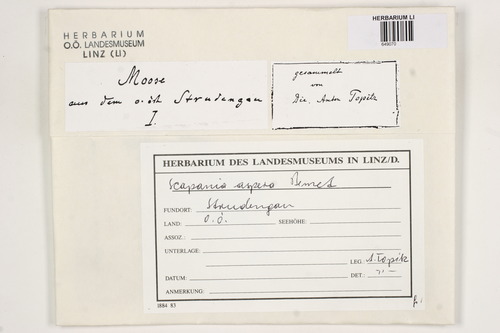 HERBARIUM
O.Ö. LANDESMUSEUM
LINZ (LI)
HERBARIUM LI
649070
Moose
aus dem o.öst. Strudengau
I.
gesammelt
von
Dir. Anton Topitz
HERBARIUM DES LANDESMUSEUMS IN LINZ/D.
Scapania aspera Bernet
FUNDORT: Strudengau
LAND: O.Ö. SEEHÖHE:
ASSOZ.:
UNTERLAGE:
LEG. A. Topitz
DATUM: DET.: -"-
ANMERKUNG:
1884 83